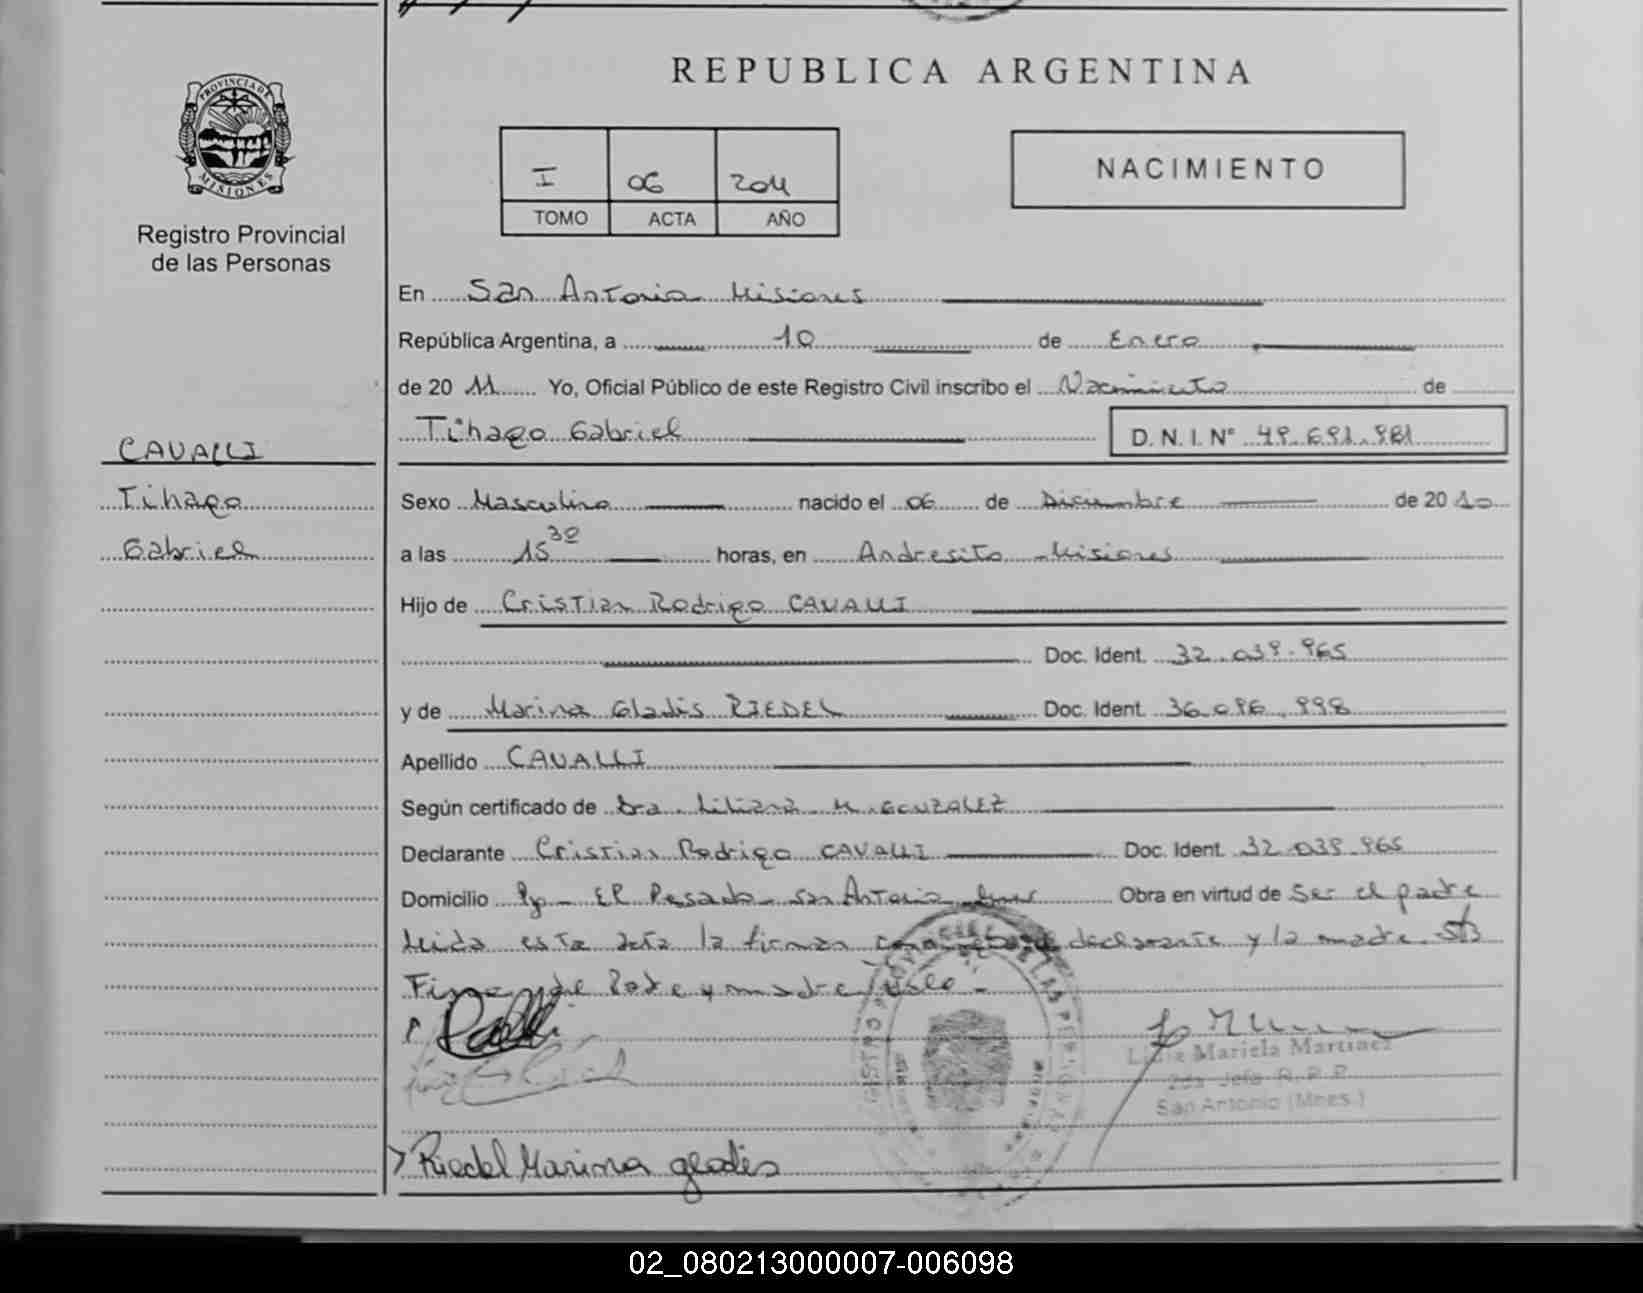 REPUBLICA ARGENTINA
PROVINCIA DE
MISIONES
Registro Provincial
de las Personas
I 06 2011
TOMO ACTA AÑO
NACIMIENTO
En San Antonio Misiones
República Argentina, a 10 de Enero
de 20 11 Yo, Oficial Público de este Registro Civil inscribo el Nacimiento de
Tihago Gabriel D. N. I. N°
CAVALLI
Tihago
Gabriel
Sexo Masculino nacido el 06 de Diciembre de 20 10
a las 15 30 horas, en Andresito - Misiones
Hijo de Cristian Rodrigo CAVALLI
Doc. Ident. 32.039.965
y de Marina Gladis RIEDEL Doc. Ident. 36.096.998
Apellido CAVALLI
Según certificado de Dra. Liliana M. GONZALEZ
Declarante Cristian Rodrigo CAVALLI Doc. Ident. 32.039.965
Domicilio San Antonio Obra en virtud de Ser el padre
Leida esta acta la firman declarante y la madre
Padre y madre
Lidia Mariela Martinez
2da Jefa R. P. P.
San Antonio (Mnes.)
Riedel Marina gladis
02_080213000007-006098